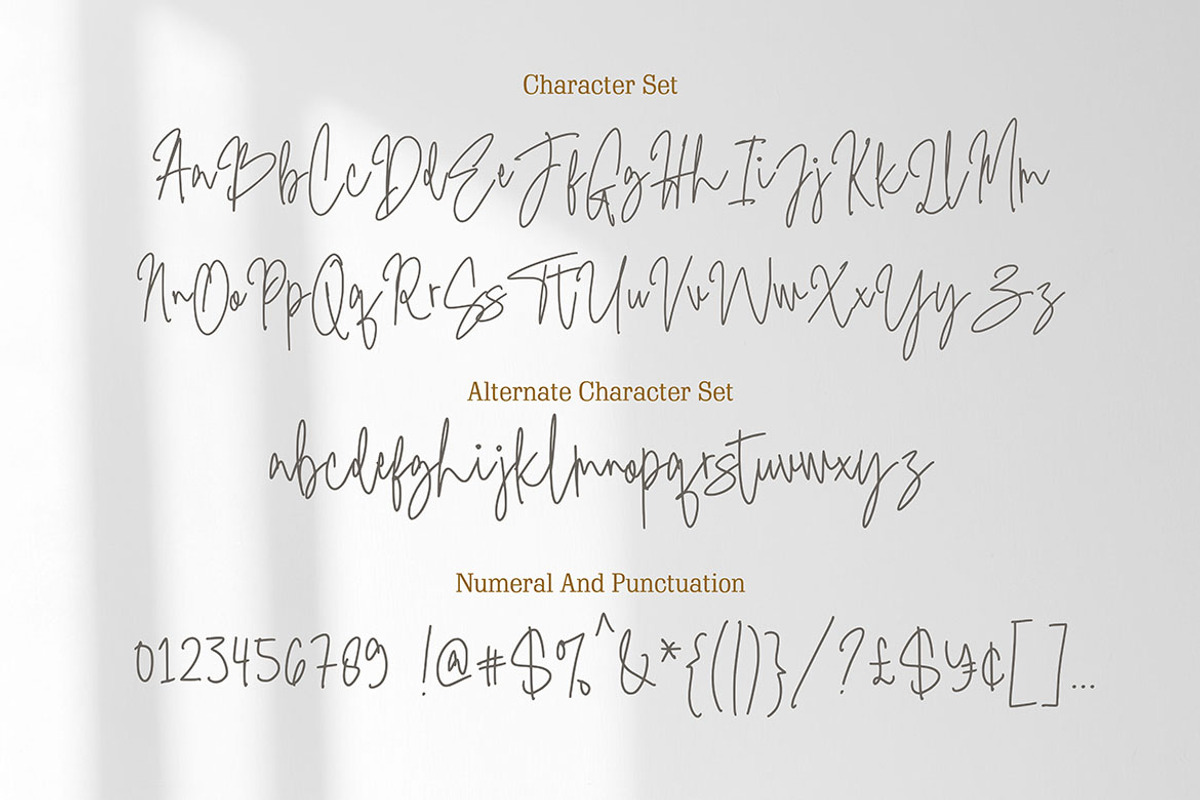 Character Set
AaBbCcDdEeFfGgHhIiJjKkLlMm
NnOoPpQqRrSsTtUuVvWwXxYyZz
Alternate Character Set
abcdefghijklmnopqrstuvwxyz
Numeral And Punctuation
0123456789 !@#$%^&*{(|)}/?£$¥¢[]...